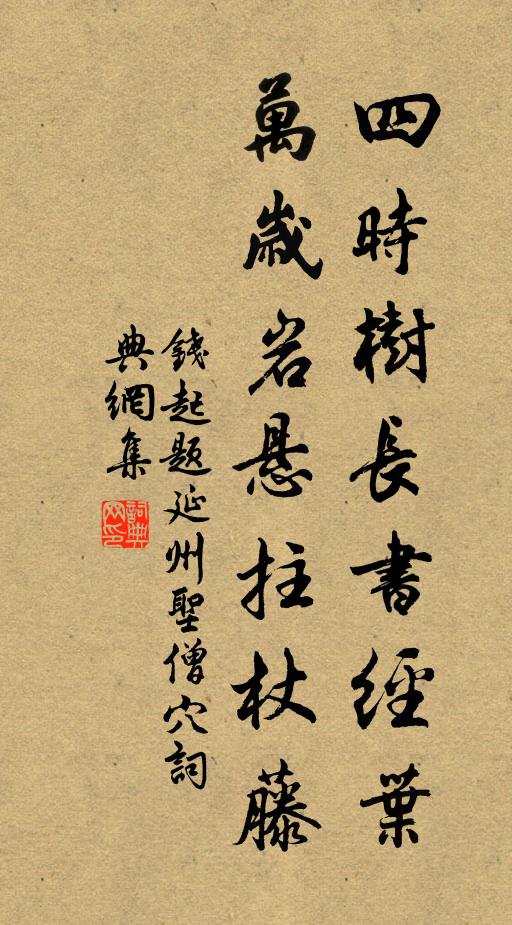 四時樹長書經葉
萬歲岩悬拄杖藤
錢起题延州聖僧穴詞
典網集
詞典
网印